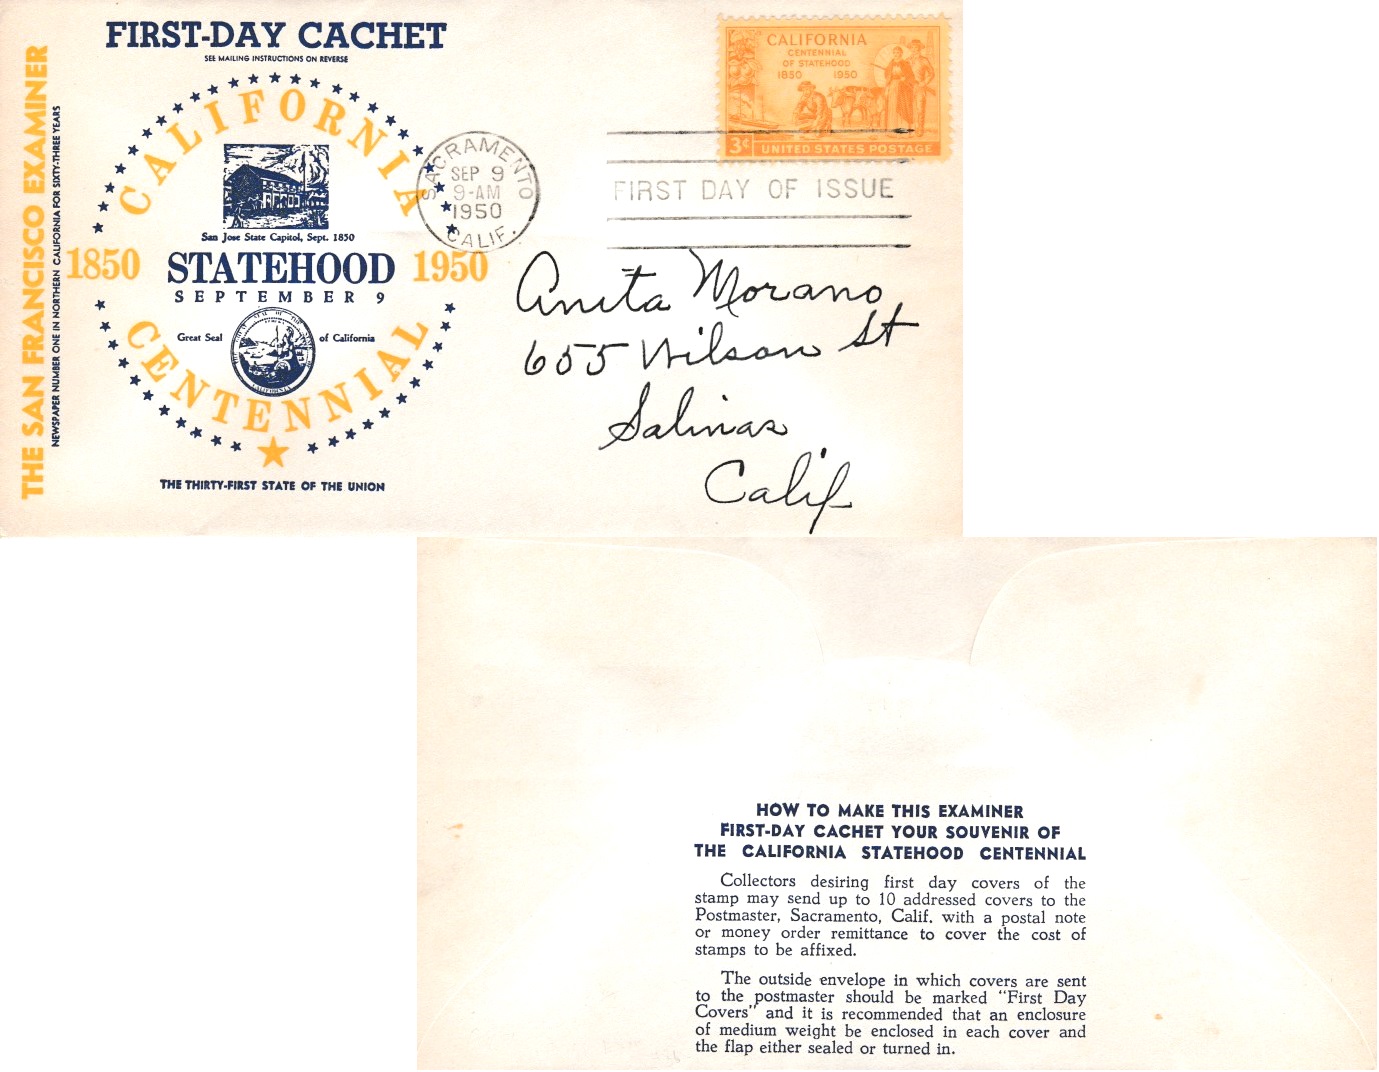 FIRST-DAY CACHET
SEE MAILING INSTRUCTIONS ON REVERSE
THE SAN FRANCISCO EXAMINER
NEWSPAPER NUMBER ONE IN NORTHERN CALIFORNIA FOR SIXTY-THREE YEARS
CALIFORNIA
San Jose State Capitol, Sept. 1850
1850 STATEHOOD 1950
SEPTEMBER 9
Great Seal of California
CENTENNIAL
THE THIRTY-FIRST STATE OF THE UNION
SACRAMENTO
SEP 9
9-AM
1950
CALIF.
CALIFORNIA
CENTENNIAL
OF STATEHOOD
1850 1950
3¢ UNITED STATES POSTAGE
FIRST DAY OF ISSUE
Anita Morano
655 Wilson St
Salinas
Calif
HOW TO MAKE THIS EXAMINER
FIRST-DAY CACHET YOUR SOUVENIR OF
THE CALIFORNIA STATEHOOD CENTENNIAL
Collectors desiring first day covers of the
stamp may send up to 10 addressed covers to the
Postmaster, Sacramento, Calif. with a postal note
or money order remittance to cover the cost of
stamps to be affixed.
The outside envelope in which covers are sent
to the postmaster should be marked "First Day
Covers" and it is recommended that an enclosure
of medium weight be enclosed in each cover and
the flap either sealed or turned in.